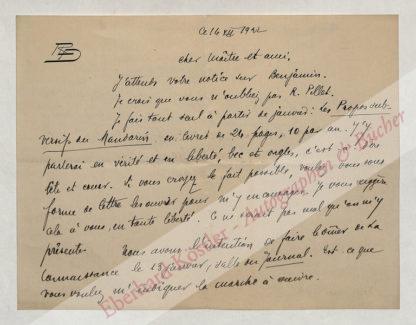 Ce 16 XII 1922
cher Maître et ami,
J'attends votre notice sur Benjamin.
Je crois que vous n'oubliez pas R. Pillet.
Je fais tout seul à partir de janvier: les Propos sub-
versifs du Mandarin en livret de 24 pages, 10 par an. J'y
parlerai en vérité et en liberté, bec et ongles, c'est à dire
tête et cœur. Si vous croyez le fait possible, voulez vous sous
forme de lettre les ouvrir pour m'y encourager. Je vous suggère
cela à vous, en toute liberté. Ce ne serait pas mal qu'on m'y
présente. Nous avons l'intention de faire l'office de la
connaissance le 13 janvier, salle du journal. Est ce que
vous voulez m'indiquer la marche à suivre.
Eberhard Köstler - Autographen & Bücher